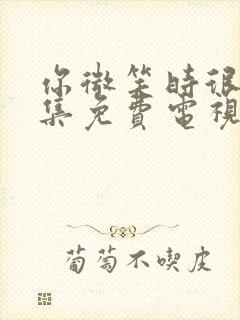 你微笑時很
集免費電視
葡萄不喫皮